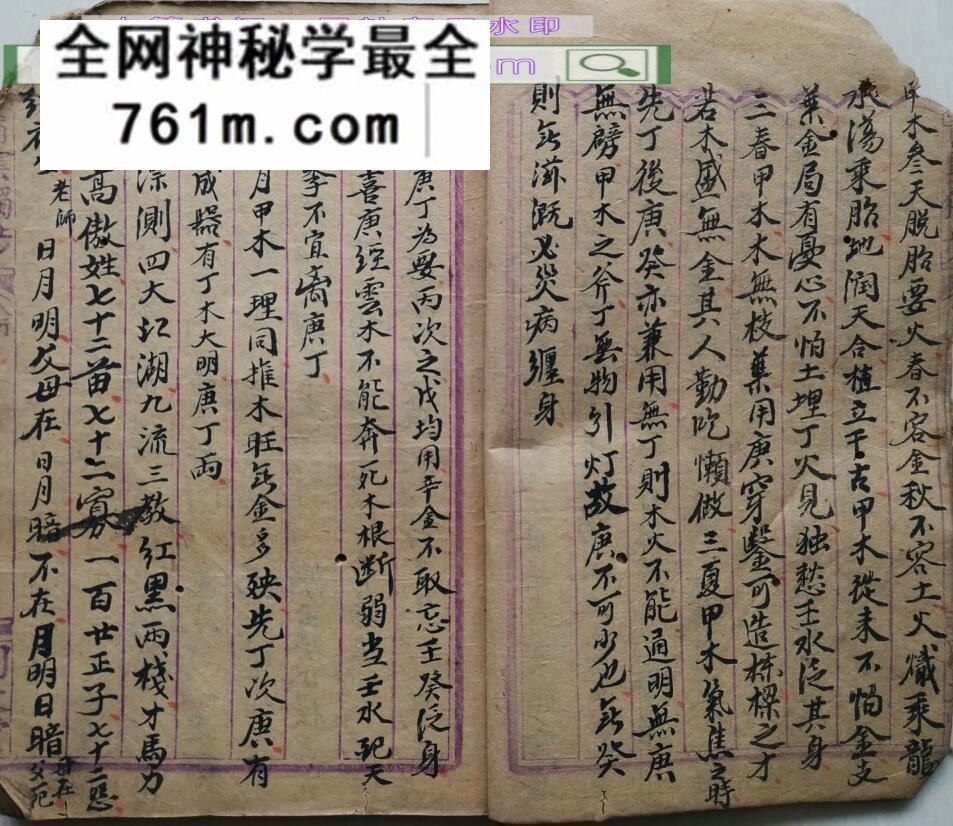 水印
全网神秘学最全
761m.com
m
甲木叁天脱胎要火春不容金秋不容土火熾乘龍
水蕩乘胎地润天合植立千古甲木從来不怕金支
葉金局有憂心不怕土埋丁火見独愁壬水泛其身
三春甲木木無枝葉用庚穿鑿可造棟樑之才
若木盛無金其人勤吃懶做三夏甲木氣焦之時
先丁後庚癸亦兼用無丁則木火不能通明無庚
無劈甲木之斧丁無物引灯故庚不可少也無癸
則無滋溉必災病纏身
庚丁為要丙次之戊均用辛金不取忘壬癸泛身
喜庚經雲木不能奔死木根断弱当壬水犯天
季不宜离庚丁
月甲木一理同推木旺無金多殃先丁次庚有
成器有丁木大明庚丁両
深測四大江湖九流三教红黑两棧才馬力
高傲姓七十二苗七十二寡一百廿正子七十二
老師
日月明父母在日月暗不在月明日暗
母在
父死